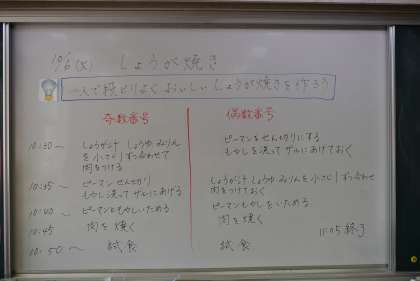 10/6(火) しょうが焼き
一人で段どりよくおいしいしょうが焼きを作ろう
奇数番号
10:30〜 しょうが汁 しょうゆ みりん
を小さじ1ずつ合わせて
肉をつける
10:35〜 ピーマンせん切り
もやし洗ってザルにあげる
10:40〜 ピーマンともやしいためる
10:45 肉を焼く
10:50〜 試食
偶数番号
ピーマンをせん切りにする
もやしを洗ってザルにあげておく
しょうが汁 しょうゆ みりんを小さじ1ずつ合わせて
肉をつけておく
ピーマンもやしをいためる
肉を焼く
11:05 終了
試食